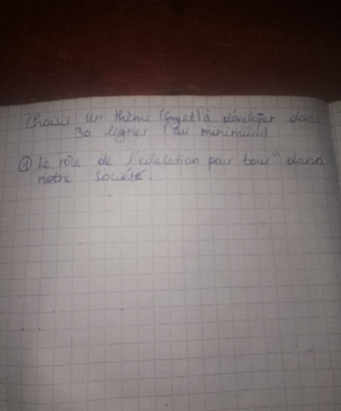 Choisis un thème (sujet) à développer dans
30 lignes (au minimum)
① Le rôle de l'éducation pour tous" dans
notre société.